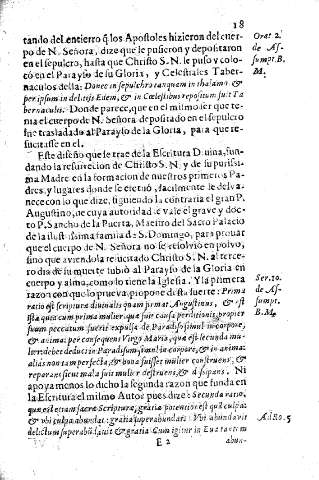 18
tando del entierro q̃ los Apostoles hizieron del cuer-
po de N. Señora, dize que le pusieron y depositaron
en el sepulcro, hasta que Christo S.N. le puso y colo-
có en el Parayso de su Gloria, y Celestiales Taber-
naculos della: Donec in sepulchro tanquam in thalamo &
per ipsum in delitijs Edem, & in Cælestibus repositum sit Ta
bernaculis. Donde parece, que en el milmo ser que te-
nia el cuerpo de N. Señora depositado en el sepulcro
fue trasladado al Parayso de la Gloria, para que re-
sucitasse en el.
Este diseño que se trae de la Escritura Diuina, fun-
dando la resurrecion de Christo S. N. y de su purissi-
ma Madre en la formacion de nuestros primeros Pa-
dres, y lugares donde se efetuó, facilmente se delva-
nece con lo que dize, siguiendo la contraria el gran P.
Augustino, de cuya autoridad se vale el graue y doc-
to P. Sancho de la Puerta, Maestro del Sacro Palacio
de la ilustrissima familia de S. Domingo, para prouar
que el cuerpo de N. Señora no se resolvió en polvo,
sino que aviendola resucitado Christo S.N. al terce-
ro dia de su muerte subió al Parayso de la Gloria en
cuerpo y almo, como lo tiene la Iglesia. Y la primera
razon con que lo prueva, propone desta suerte: Prima
ratio est scriptura diuinalis quam primat Augustinus, & est
ista quia cum prima mulier que fuit causa perditionis, propier
suum peccatum fuerit expulsa de Paradiso simul in corpore,
& anima: per consequens Virgo Maria, quæ est secunda mu-
lier debet deduci in Paradisum simul in corpore, & in anima:
alias non tam perfecta, & bona fuisset mulier construens, &
reparans sicut mala fuit mulier destruens, & dissipans. Ni
apoya menos lo dicho la segunda razon que funda en
la Escritura el milmo Autor pues dize: Secunda ratio,
quæ est etiam sacræ Scripturæ, gratia potentior est quã culpa:
& vbi culpa abundat: gratia superabundat: Vbi abundavit
delictum superabũdavit & gratia. Cum igitur in Eua tantum
E 2
abun-
Orat. 2.
de As-
sumpt. B.
M.
Ser. 10.
de As-
sumpt.
B. M.
Ad Ro. 5